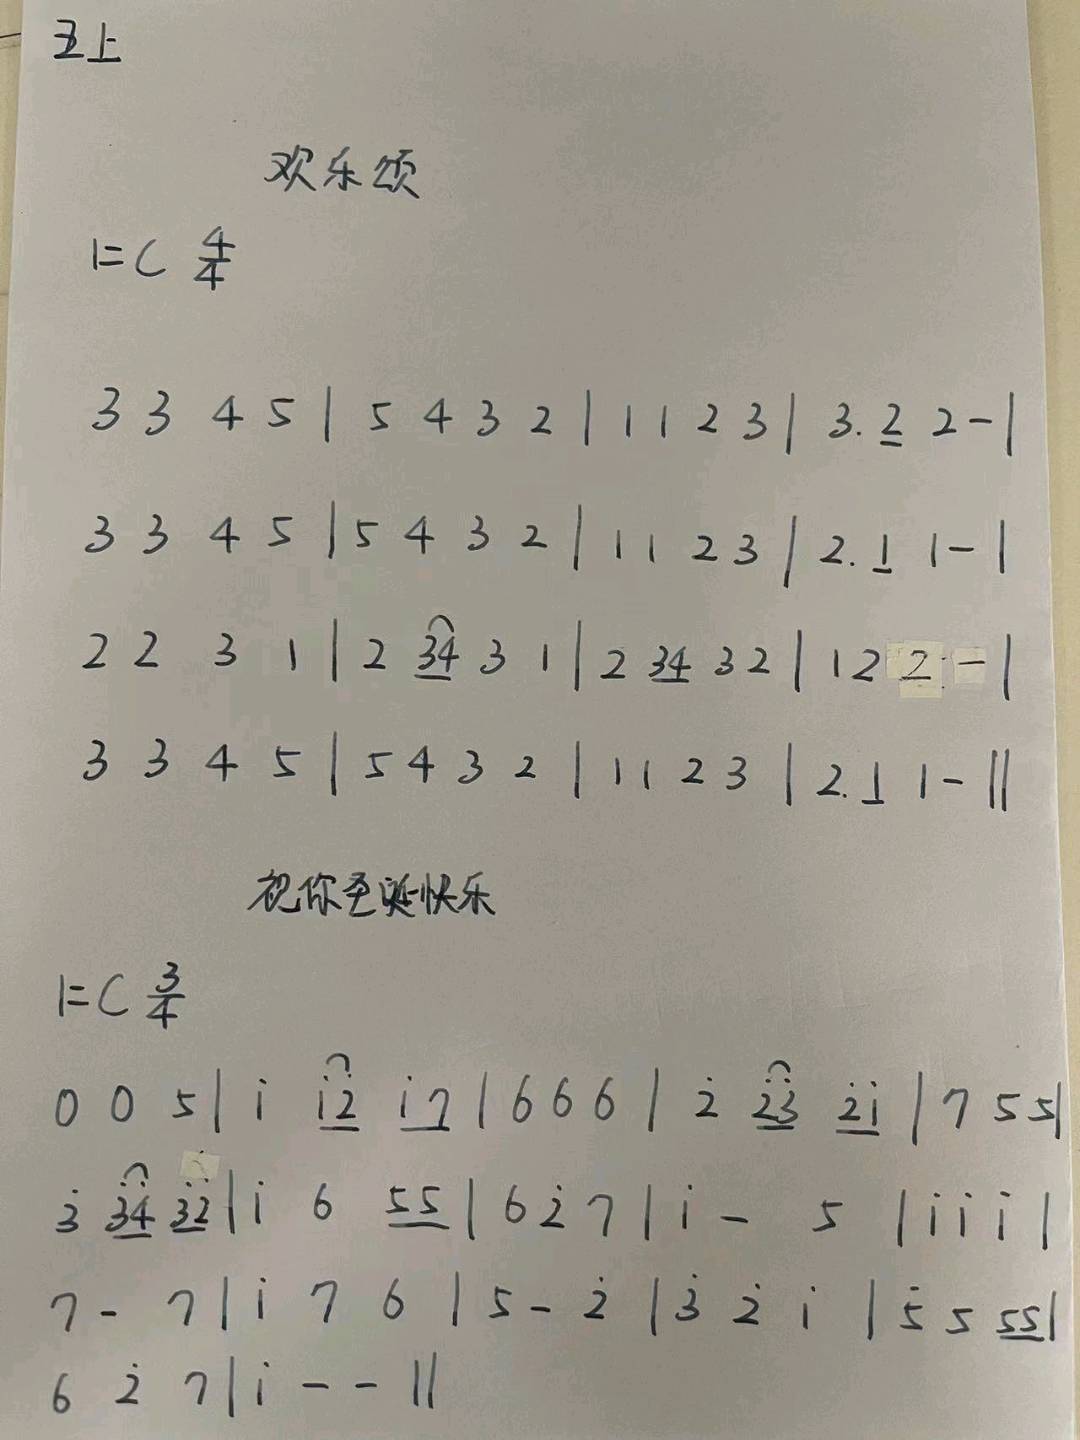 五上
欢乐颂
1=C 4/4
3 3 4 5 | 5 4 3 2 | 1 1 2 3 | 3. 2̲ 2 - |
3 3 4 5 | 5 4 3 2 | 1 1 2 3 | 2. 1̲ 1 - |
2 2 3 1 | 2 3̲4̲ 3 1 | 2 3̲4̲ 3 2 | 1 2 2 - |
3 3 4 5 | 5 4 3 2 | 1 1 2 3 | 2. 1̲ 1 - ||
祝你圣诞快乐
1=C 3/4
0 0 5 | i i̲2̲̇ i̲7̲ | 6 6 6 | 2̇ 2̲̇3̲̇ 2̲̇i̲ | 7 5 5 |
3̇ 3̲̇4̲̇ 3̲̇2̲̇ | i 6 5̲5̲ | 6 2̇ 7 | i - 5 | i i i |
7 - 7 | i 7 6 | 5 - 2̇ | 3̇ 2̇ i | 5̇ 5 5̲5̲ |
6 2̇ 7 | i - - ||